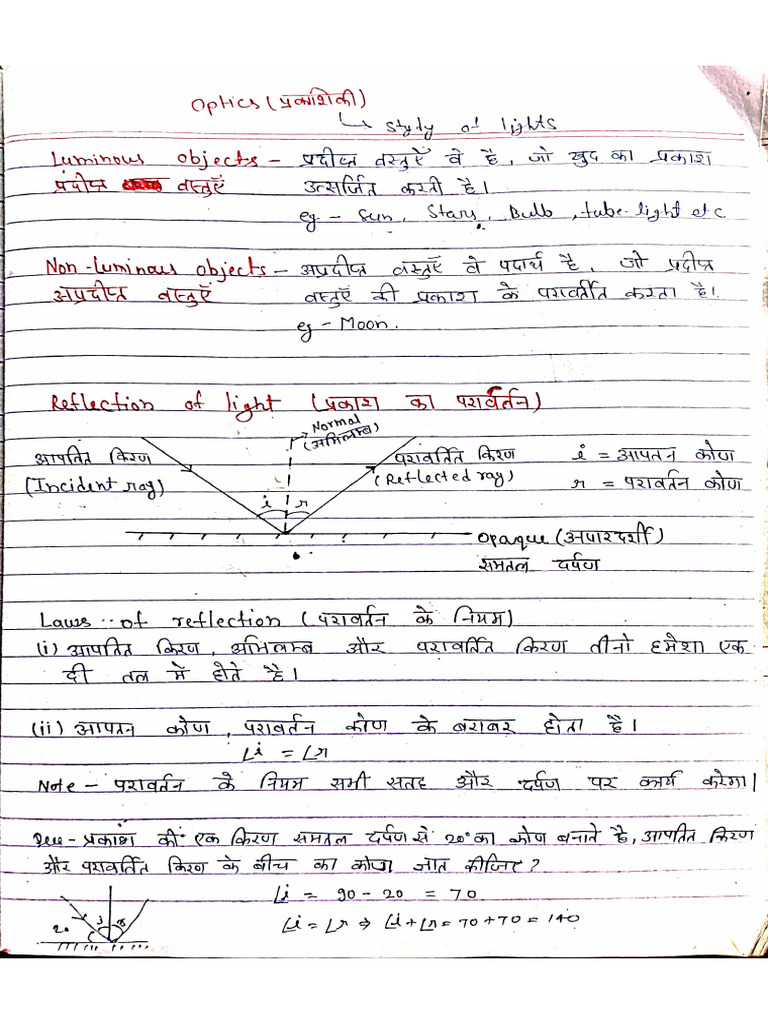 Optics (प्रकाशिकी)
↳ Styly of lights
Luminous objects - प्रदीप्त वस्तुएँ वे है, जो खुद का प्रकाश
प्रदीप्त वस्तुएँ उत्सर्जित करती है।
eg - Sun, Stars, Bulb, tube-light etc
Non-luminous objects - अप्रदीप्त वस्तुएँ वे पदार्थ है, जो प्रदीप्त
अप्रदीप्त वस्तुएँ वस्तुएँ की प्रकाश के परावर्तीत करता है।
eg - Moon.
Reflection of light (प्रकाश का परावर्तन)
Normal
(अभिलम्ब)
आपतित किरण परावर्तित किरण i = आपतन कोण
(Incident ray) (Reflected ray) r = परावर्तन कोण
i r
Opaque (अपारदर्शी)
समतल दर्पण
Laws of reflection (परावर्तन के नियम)
(i) आपतित किरण, अभिलम्ब और परावर्तित किरण तीनो हमेशा एक
दी तल में होते है।
(ii) आपतन कोण, परावर्तन कोण के बराबर होता है।
∠i = ∠r
Note - परावर्तन के नियम सभी सतह और दर्पण पर कार्य करेगा।
प्रकाश की एक किरण समतल दर्पण से 20° का कोण बनाते है, आपतित किरण
और परावर्तित किरण के बीच का कोण ज्ञात कीजिए?
∠i = 90 - 20 = 70
∠i = ∠r ⇒ ∠i + ∠r = 70 + 70 = 140
20